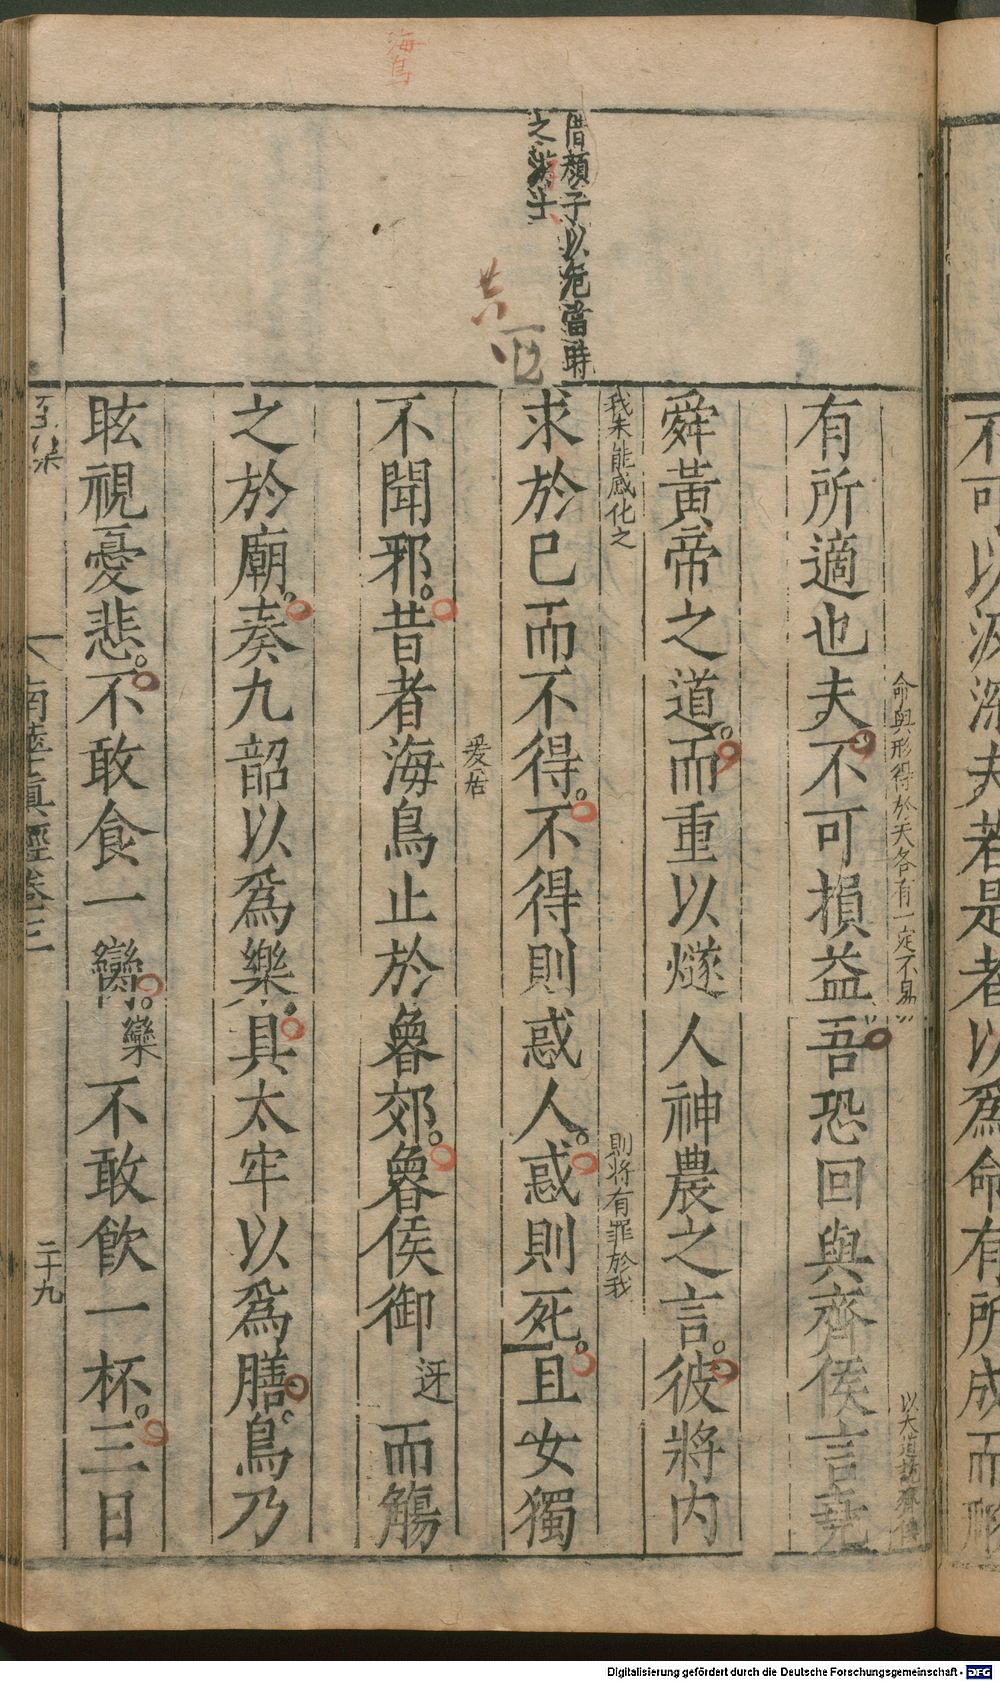 海鳥
借顏子以危當時
之
有所適也夫不可損益吾恐回與齊侯言堯
命與形得於天各有一定不易
以大道說齊侯
舜黃帝之道而重以燧人神農之言彼將內
求於已而不得不得則惑人惑則死且女獨
我未能感化之
則將有罪於我
不聞邪昔者海鳥止於魯郊魯侯御迓而觴
爰居
之於廟奏九韶以爲樂具太牢以爲膳鳥乃
眩視憂悲不敢食一臠欒不敢飲一杯三日
南華真經卷三
二十九
不可以汲深夫若是者以爲命有所成而形
Digitalisierung gefördert durch die Deutsche Forschungsgemeinschaft - DFG